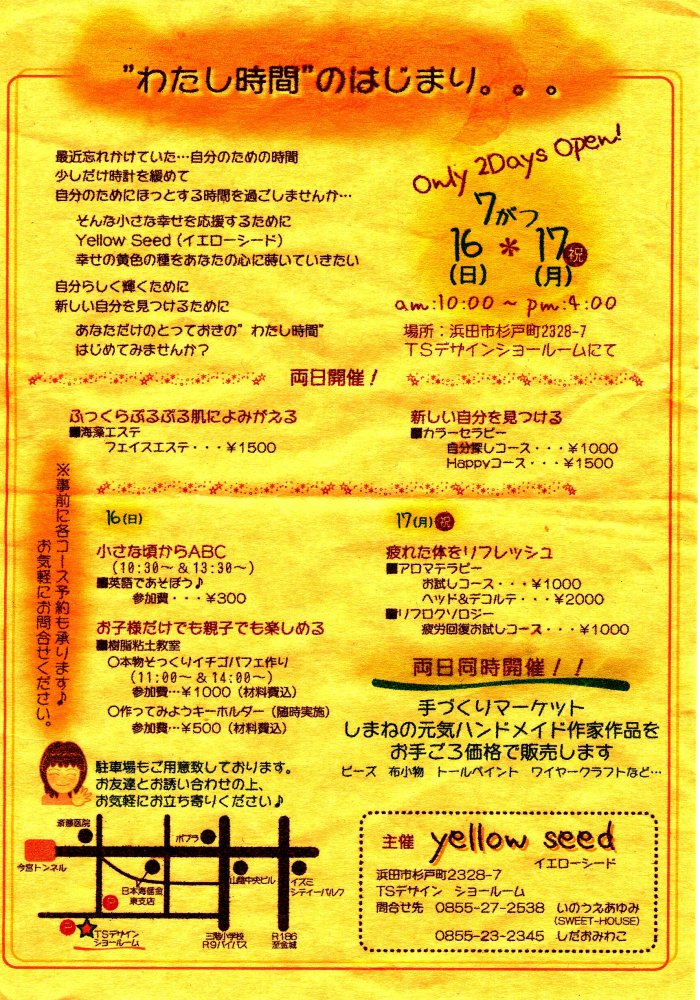 "わたし時間"のはじまり。。。
最近忘れかけていた…自分のための時間
少しだけ時計を緩めて
自分のためにほっとする時間を過ごしませんか…
そんな小さな幸せを応援するために
Yellow Seed（イエローシード）
幸せの黄色の種をあなたの心に蒔いていきたい
自分らしく輝くために
新しい自分を見つけるために
あなただけのとっておきの"わたし時間"
はじめてみませんか？
Only 2Days Open!
7がつ
16 * 17 祝
(日) (月)
am:10:00 ~ pm:4:00
場所：浜田市杉戸町2328-7
TSデザインショールームにて
両日開催！
ふっくらぷるぷる肌によみがえる
■海藻エステ
フェイスエステ・・・¥1500
新しい自分を見つける
■カラーセラピー
自分探しコース・・・¥1000
Happyコース・・・¥1500
※事前に各コース予約も承ります♪
お気軽にお問合せください。
16(日)
小さな頃からABC
(10:30～&13:30～)
■英語であそぼう♪
参加費・・・¥300
お子様だけでも親子でも楽しめる
■樹脂粘土教室
○本物そっくりイチゴパフェ作り
(11:00～ &14:00～)
参加費…¥1000（材料費込）
○作ってみようキーホルダー（随時実施）
参加費…¥500（材料費込）
17(月) 祝
疲れた体をリフレッシュ
■アロマテラピー
お試しコース・・・¥1000
ヘッド&デコルテ・・・¥2000
■リフロクソロジー
疲労回復お試しコース・・・¥1000
両日同時開催！！
手づくりマーケット
しまねの元気ハンドメイド作家作品を
お手ごろ価格で販売します
ビーズ 布小物 トールペイント ワイヤークラフトなど…
駐車場もご用意致しております。
お友達とお誘い合わせの上、
お気軽にお立ち寄りください♪
斎藤医院
ポプラ
今宮トンネル
日本海信金
東支店
山陰中央ビル
イズミ
シティーパルク
P
P
TSデザイン
ショールーム
三階小学校
R9バイパス
R186
至金城
主催 yellow seed
イエローシード
浜田市杉戸町2328-7
TSデザイン ショールーム
問合せ先 0855-27-2538 いのうえあゆみ
(SWEET-HOUSE)
0855-23-2345 しだおみわこ